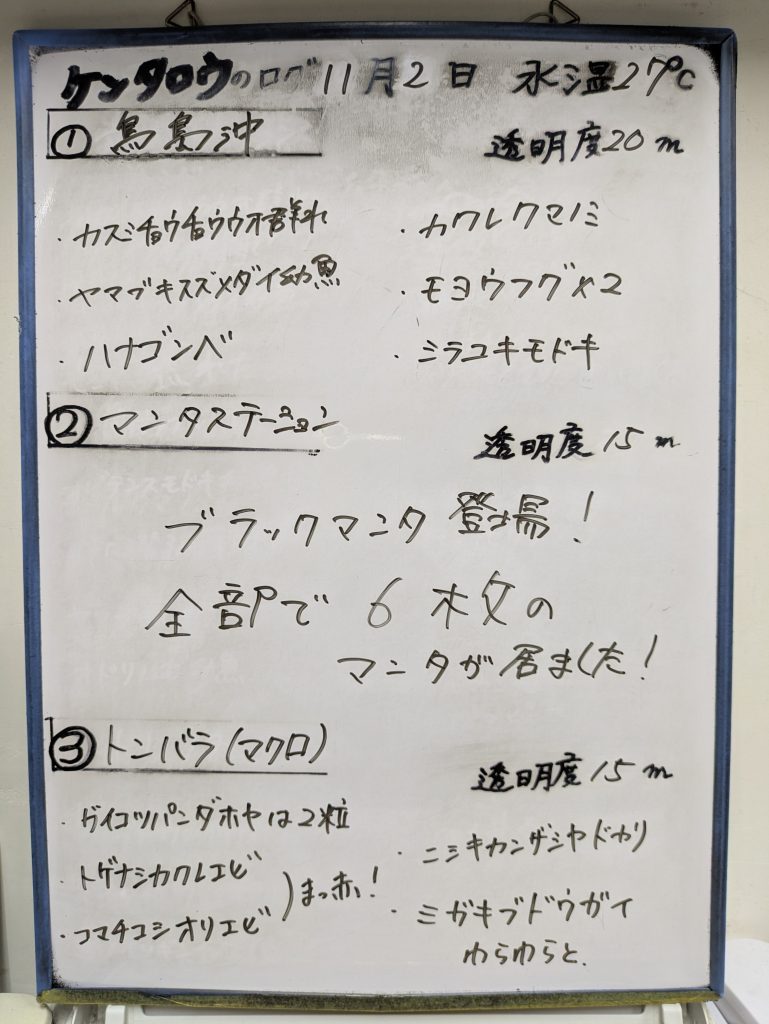 ケンタロウのログ 11月2日 水温27℃
① 鳥島沖
透明度20m
・カスミチョウチョウウオ群れ
・ヤマブキスズメダイ幼魚
・ハナゴンベ
・カクレクマノミ
・モヨウフグ×2
・ミラユキモドキ
② マンタステーション
透明度15m
ブラックマンタ登場!
全部で6枚の
マンタが居ました!
③ トンバラ(マクロ)
透明度15m
・ガイコツパンダホヤは2粒
・トゲナシカクレエビ
・コマチコシオリエビ
)まっ赤!
・ニシキカンザシヤドカリ
・ミガキブドウガイ
わらわらと.